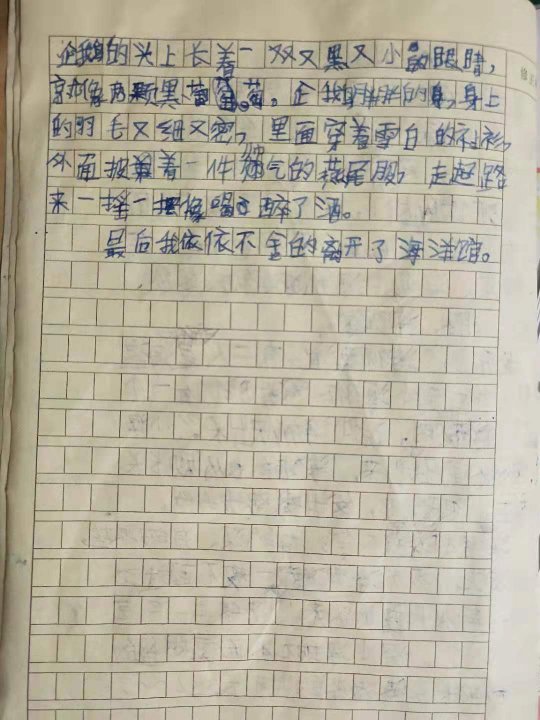 企鹅的头上长着一双又黑又小的眼睛，
就像两颗黑葡萄。企鹅胖胖的身，身上
的羽毛又细又密，里面穿着雪白的衬衫，
外面披着一件帅气的燕尾服，走起路
来一摇一摆像喝醉了酒。
最后我依依不舍的离开了海洋馆。